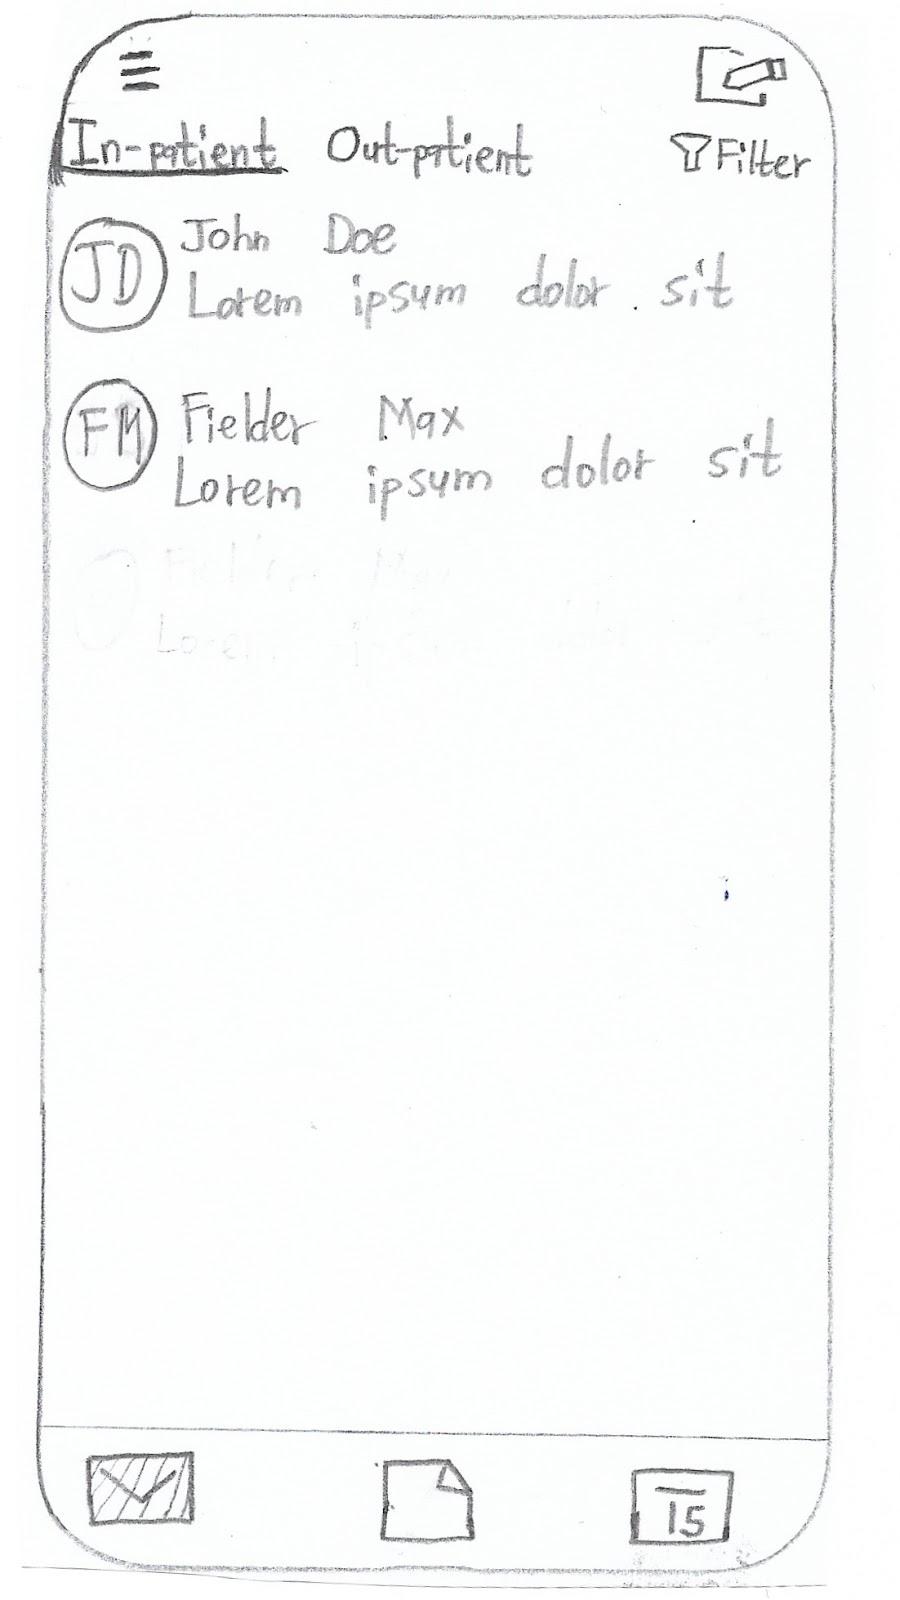 In-patient Out-patient Filter
JD John Doe
Lorem ipsum dolor sit
FM Fielder Max
Lorem ipsum dolor sit
15